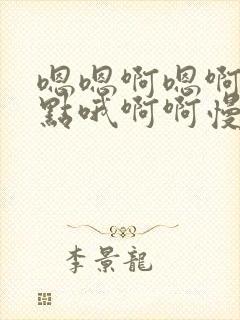 嗯嗯啊嗯啊
點哦啊啊慢
李景龍